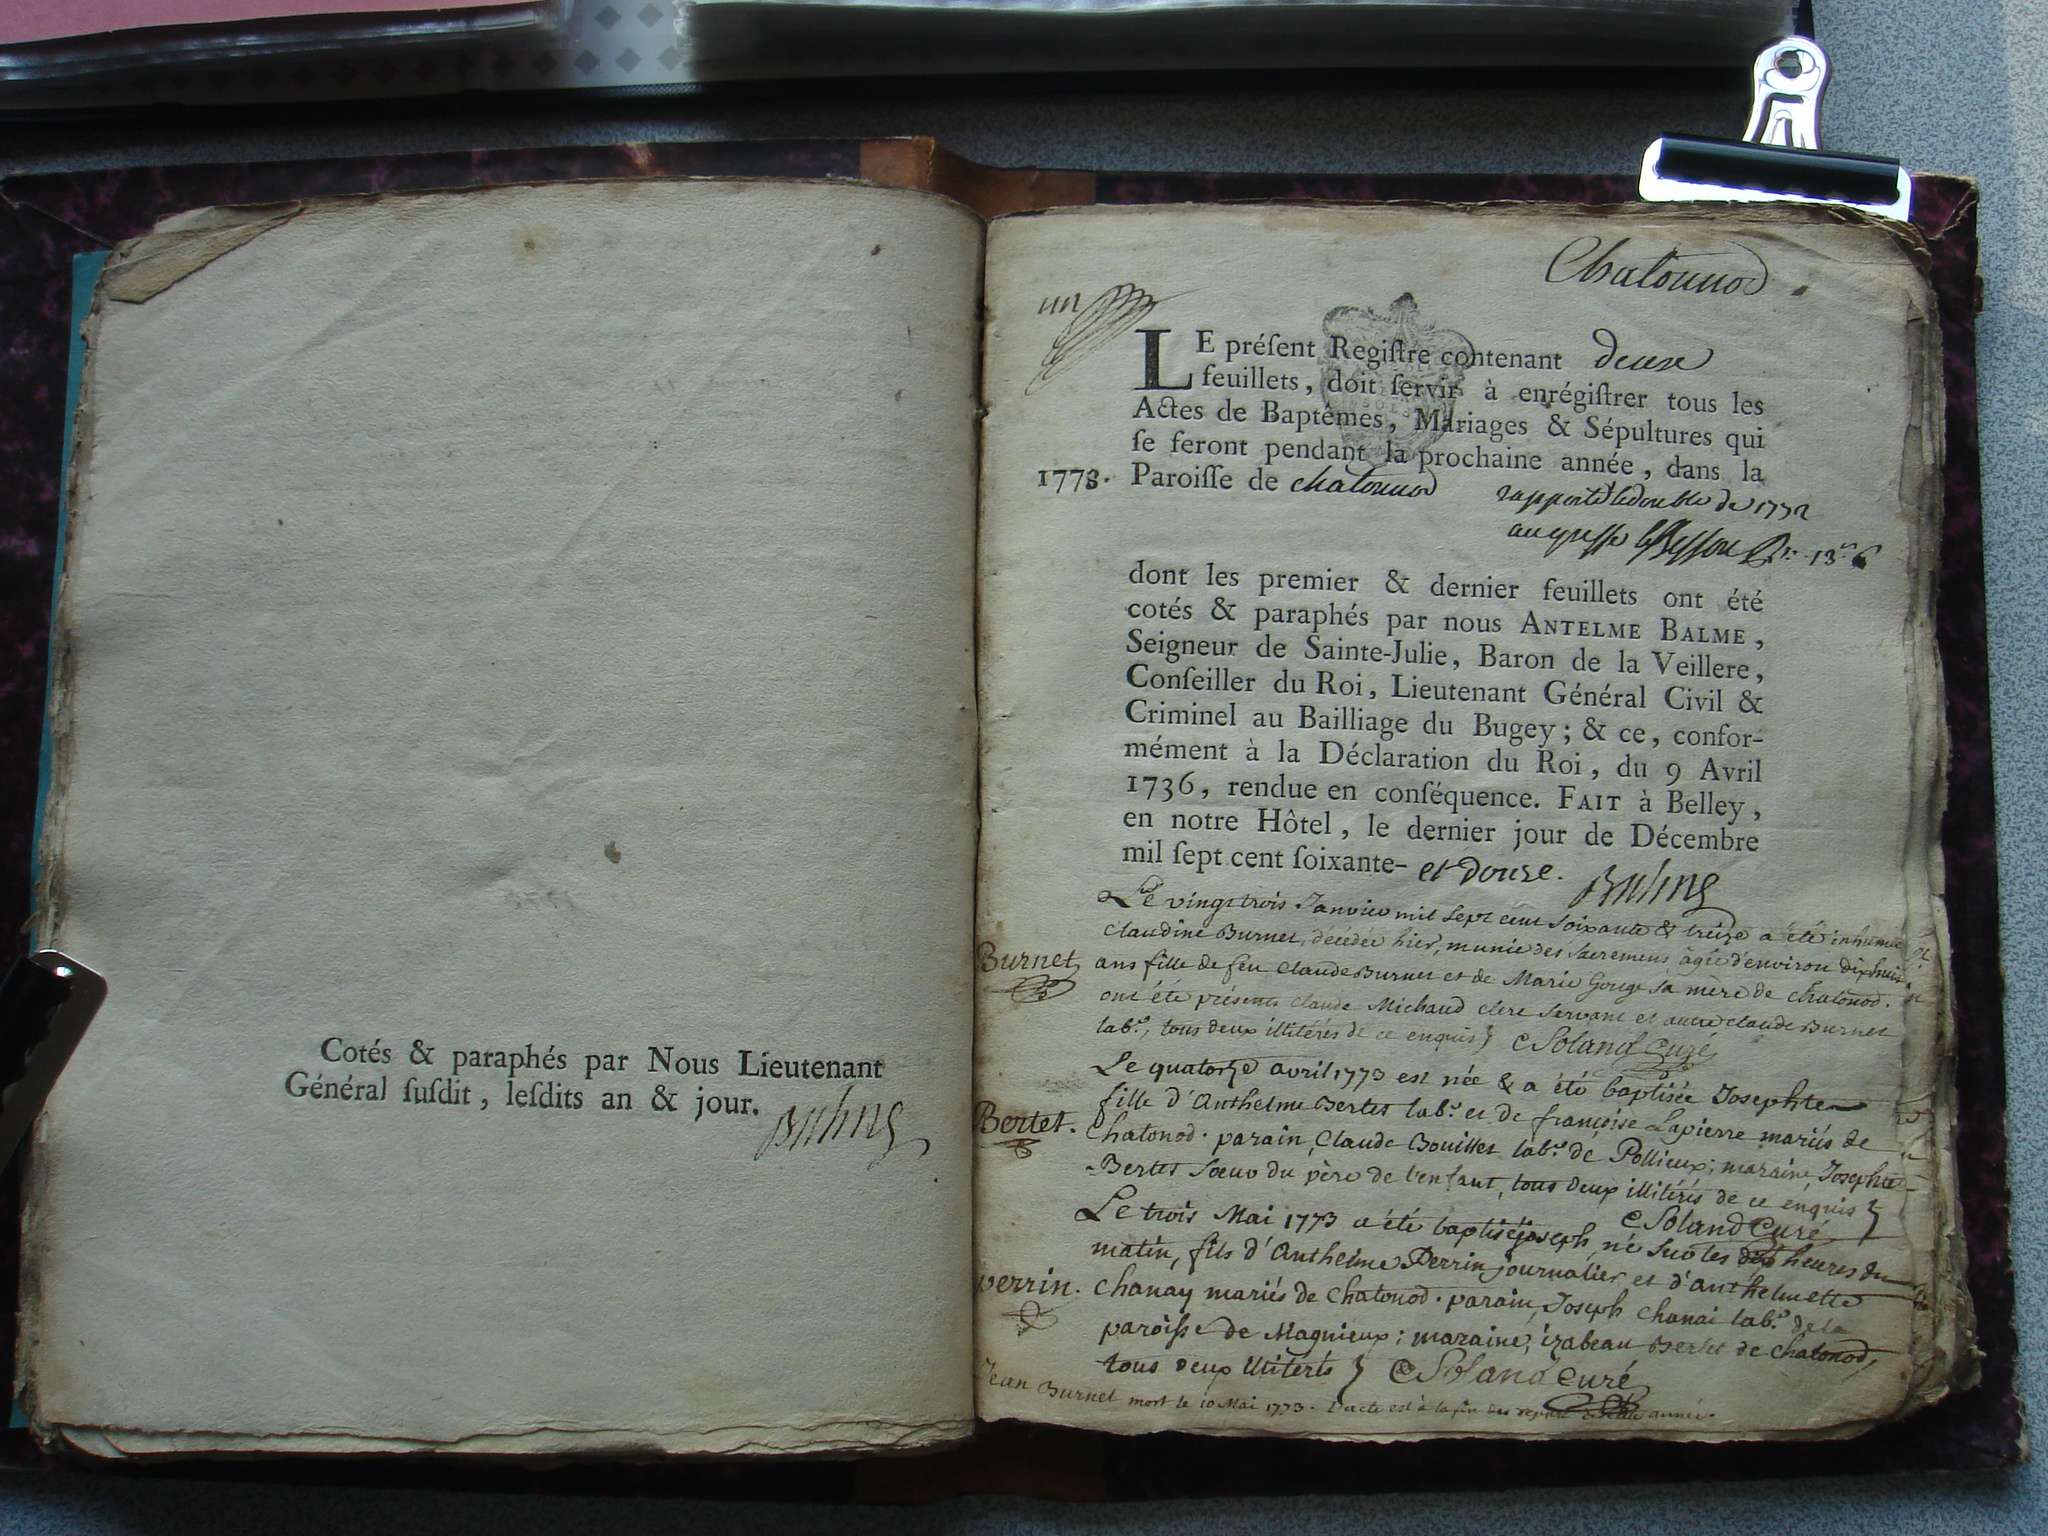 Cotés & paraphés par Nous Lieutenant
Général ſuſdit, leſdits an & jour.
Chatonnod
un
LE préſent Regiſtre contenant deux
feuillets, doit ſervir à enrégiſtrer tous les
Actes de Baptêmes, Mariages & Sépultures qui
ſe feront pendant la prochaine année, dans la
1773. Paroiſſe de chatonnod rapporté le double de 1772
au greffe
dont les premier & dernier feuillets ont été
cotés & paraphés par nous ANTELME BALME,
Seigneur de Sainte-Julie, Baron de la Veillere,
Conſeiller du Roi, Lieutenant Général Civil &
Criminel au Bailliage du Bugey; & ce, confor-
mément à la Déclaration du Roi, du 9 Avril
1736, rendue en conſéquence. FAIT à Belley,
en notre Hôtel, le dernier jour de Décembre
mil ſept cent ſoixante- et douze.
Le vingt trois Janvier mil sept cent soixante & treize a été inhumée
Claudine Burnet, décédée hier, munie des sacremens, âgée d'environ dixhuit
Burnet ans fille de feu Claude Burnet et de Marie Gouge sa mère de Chatonod.
ont été présents Claude Michaud clerc servant et autre Claude Burnet
lab.r, tous deux illitérés de ce enquis } C Soland Curé
Le quatorze avril 1773 est née & a été baptisée Josephte
fille d'Anthelme Bertet lab.r et de françoise Lapierre mariés de
Bertet. Chatonod. parain, Claude Bouillet lab.r de Pollieux; maraine, Josephte
Bertet sœur du père de l'enfant, tous deux illitérés de ce enquis }
C Soland Curé
Le trois Mai 1773 a été baptisé joseph, né sur les dix heures du
matin, fils d'Anthelme Perrin journalier et d'Anthelmette
perrin. Chanay mariés de Chatonod. parain, Joseph Chanai lab.r de la
paroisse de Magnieux; maraine, izabeau Bertet de Chatonod,
tous deux illitérés } C Soland Curé
Jean Burnet mort le 10 Mai 1773. l'acte est à la fin des année.